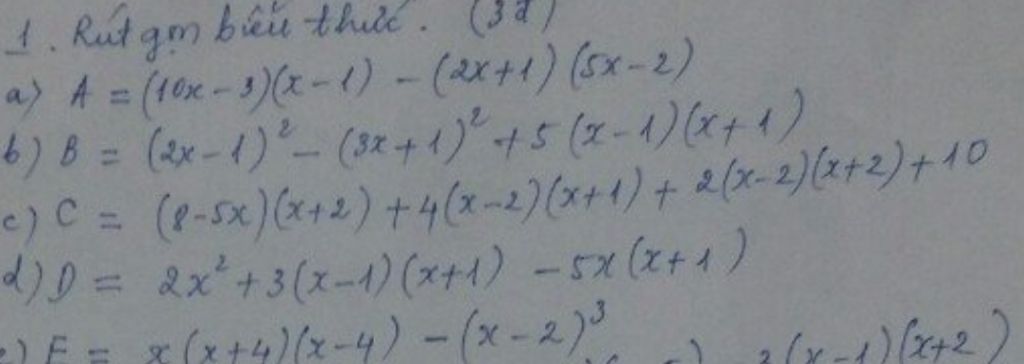 1. Rút gọn biểu thức. (3đ)
a) A = (10x - 3)(x - 1) - (2x + 1)(5x - 2)
b) B = (2x - 1)² - (3x + 1)² + 5(x - 1)(x + 1)
c) C = (8 - 5x)(x + 2) + 4(x - 2)(x + 1) + 2(x - 2)(x + 2) + 10
d) D = 2x² + 3(x - 1)(x + 1) - 5x(x + 1)
e) E = x(x + 4)(x - 4) - (x - 2)³
3(x - 1)(x + 2)